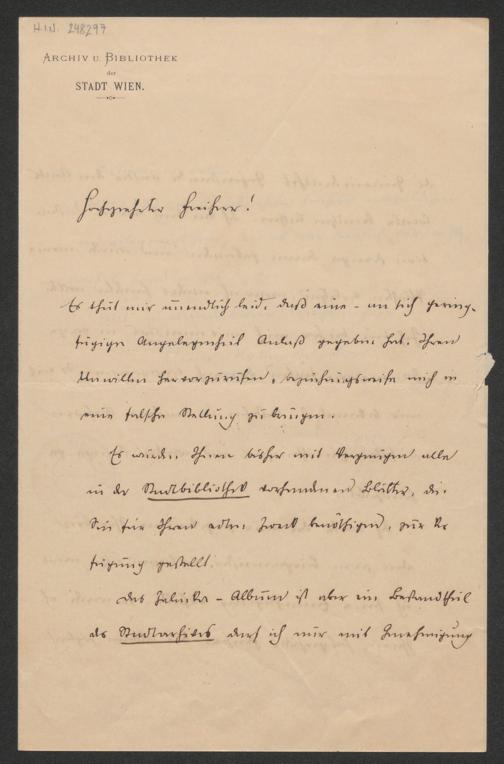 H.I.N. 248297
ARCHIV U. BIBLIOTHEK
der
STADT WIEN.
Hochgeehrter Freiherr!
Es thut mir unendlich leid, daß eine – an sich gering-
fügige Angelegenheit Anlaß gegeben hat, Ihren
Unwillen hervorzurufen, beziehungsweise mich in
eine falsche Stellung zu bringen.
Es wurden Ihnen bisher mit Vergnügen alle
in der Stadtbibliothek vorhandenen Blätter, die
Sie für Ihren edlen Zweck benöthigen, zur Ver
fügung gestellt.
Das – Album ist aber ein Bestandtheil
des Stadtarchives darf ich nur mit Genehmigung